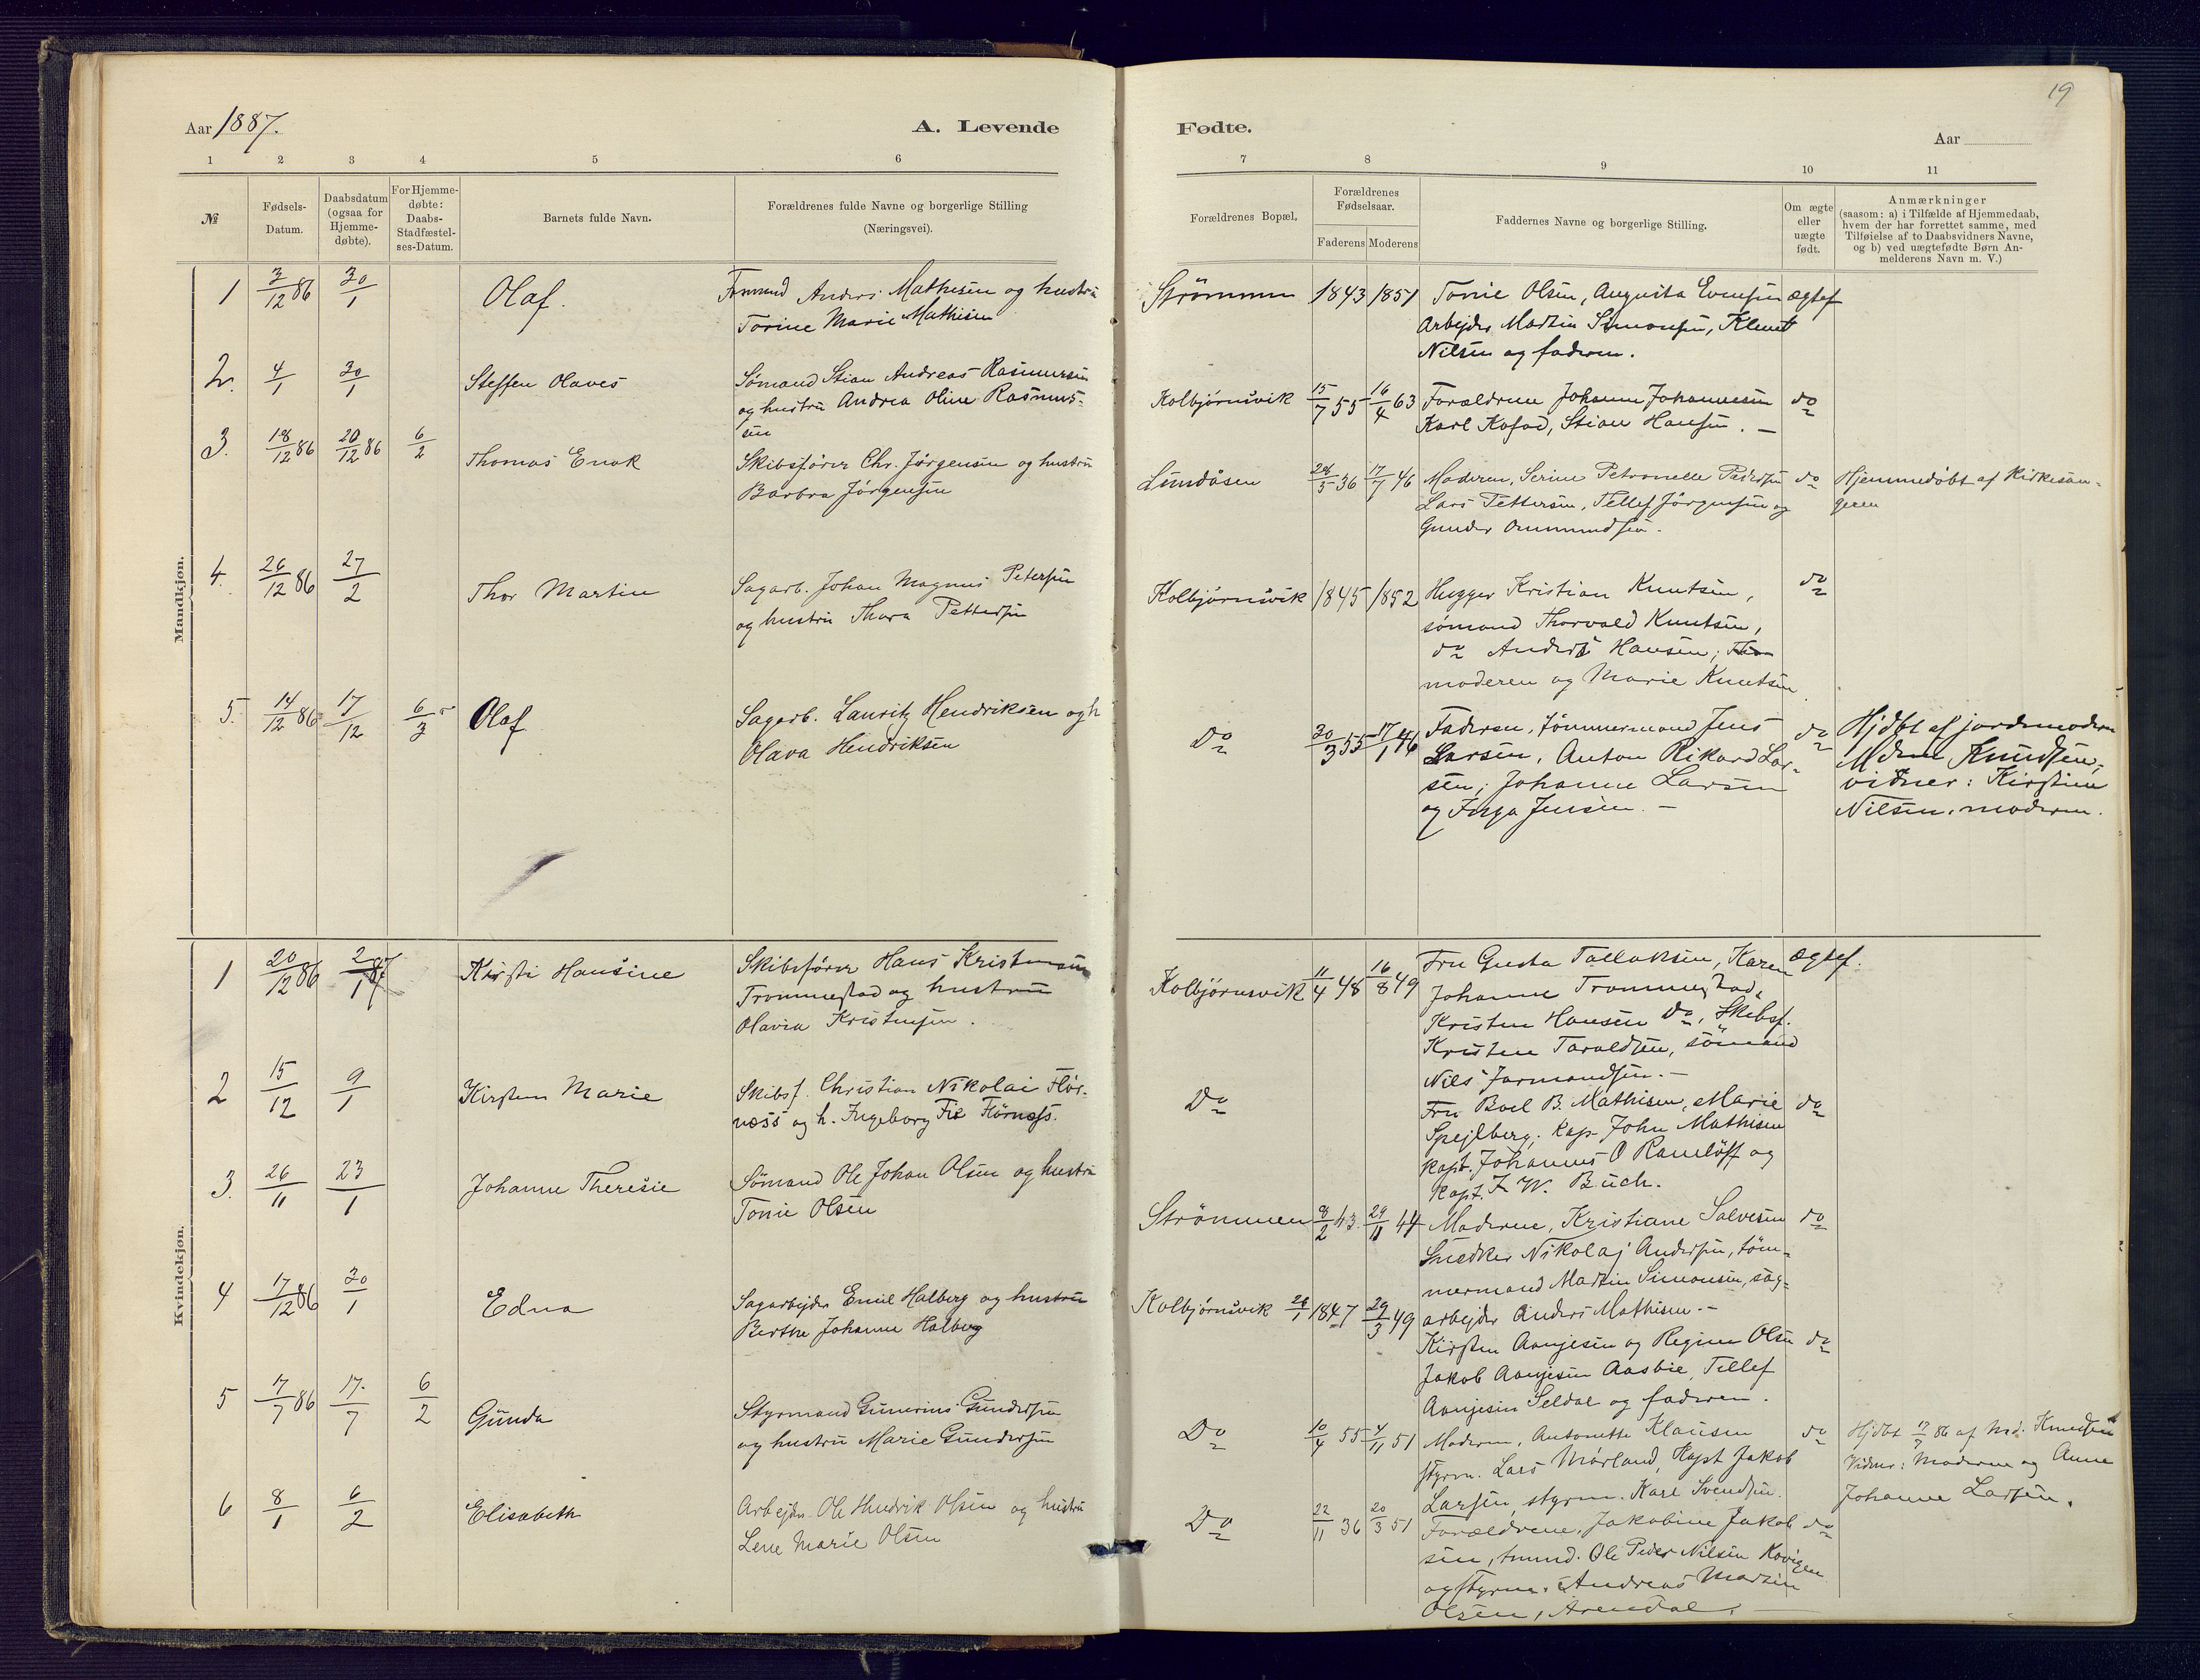 19
Aar 1887.
A. Levende
Fødte.
Aar
1 2 3 4 5 6
7 8 9 10 11
№
Fødsels-
Datum.
Daabsdatum
(ogsaa for
Hjemme-
døbte).
For Hjemme-
døbte:
Daabs-
Stadfæstel-
ses-Datum.
Barnets fulde Navn.
Forældrenes fulde Navne og borgerlige Stilling
(Næringsvei).
Forældrenes Bopæl.
Forældrenes
Fødselsaar.
Faderens Moderens
Faddernes Navne og borgerlige Stilling.
Om ægte
eller
uægte
født.
Anmærkninger
(saasom: a) i Tilfælde af Hjemmedaab,
hvem der har forrettet samme, med
Tilføielse af to Daabsvidners Navne,
og b) ved uægtefødte Børn An-
melderens Navn m. V.)
Mandkjøn.
1 3/12 86 30/1 Olaf. Anders Mathisen og hustru
Torine Marie Mathisen
Strømmen 1843 1851 Tonie Olsen, Augusta Evensen ægtef
Arbejder Martin Simonsen, Klemet
Nilsen og faderen.
2. 4/1 30/1 Steffen Olaves Sømand Stian Andreas Rasmussen
og hustru Andrea Oline Rasmus-
sen
Kolbjørnsvik 15/7 55 16/4 63 Forældrene Johanne Johannesen do
Karl Kofod, Stian Hansen. —
3. 18/12 86 20/12 86 6/2 Thomas Enok Skibsfører Chr. Jørgensen og hustru
Barbra Jørgensen
Lundåsen 28/5 36 17/7 46 Moderen, Serine Petronelle Pedersen do Hjemmedøbt af Kirkesan-
Lars Pettersen, Tellef Jørgensen og geren
Gunder Ommundsen.
4. 26/12 86 27/2 Thor Martin Sagarb. Johan Magnus Petersen
og hustru Thora Pettersen
Kolbjørnsvik 1845 1852 Hugger Kristian Knutsen, do
sømand Thorvald Knutsen,
do Anders Hansen,
moderen og Marie Knutsen
5. 14/12 86 17/12 6/3 Olaf Sagarb. Lauritz Hendriksen og h
Olava Hendriksen
Do 30/3 55 17/1 46 Faderen, tømmermand Jens do Hjdbt af jordemoderen
Larsen, Anton Rikard Lar- Mdme Knudsen,
sen, Johanne Larsen vidner: Kirstine
og Inga Jensen. — Nilsen, moderen.
Kvindekjøn.
1 20/12 86 2/1 87 Kirsti Hansine Skibsfører Hans Kristensen
Trommestad og hustru
Olavia Kristensen.
Kolbjørnsvik 11/4 48 16/8 49 Fru Gusta Tallaksen, Karen ægtef.
Johanne Trommestad,
Kristen Hansen do, Skibsf.
Kristen Taraldsen, sømand
Nils Jormandsen. —
2 15/12 9/1 Kirsten Marie Skibsf. Christian Nikolai Flør-
næss og h. Ingeborg Fie Flørnæss.
Do Fru Boel B. Mathisen, Marie do
Spejlberg, Kap. John Mathisen
kapt. Johannes O Ramløff og
kapt. F. W. Buch.
3. 26/11 23/1 Johanne Theresie Sømand Ole Johan Olsen og hustru
Tonie Olsen
Strömmen 8/2 43 29/11 44 Moderen, Kristiane Salvesen do
Snedker Nikolaj Andersen, töm-
mermand Martin Simonsen, sag-
arbejder Anders Mathisen. —
4 17/12 86 30/1 Edna Sagarbejder Emil Halberg og hustru
Berthe Johanne Halberg
Kolbjørnsvik 26/1 1847 29/3 49
Kirsten Aanjesen og Regine Olsen do
Jakob Aanjesen Aasbie, Tellef
Aanjesen Seldal og faderen.
5 7/7 86 17/7 6/2 Gunda Styrmand Gunerius Gundersen
og hustru Marie Gundersen
Do 10/4 55 4/11 51 Moderen, Antonette Klausen do Hjdbt 17/7 86 af Md. Knudsen
styrm. Lars Mørland, Kapt Jakob Vidner: Moderen og Anne
Larsen, styrm. Karl Svendsen. Johanne Larsen.
6 8/1 6/2 Elisabeth Arbejder Ole Hendrik Olsen og hustru
Lene Marie Olsen
Do 22/11 36 20/3 51 Forældrene, Jakobine Jakob do
sen, tmmd. Ole Peder Nilsen
og styrm. Andreas Martin
Olsen, Arendal. —